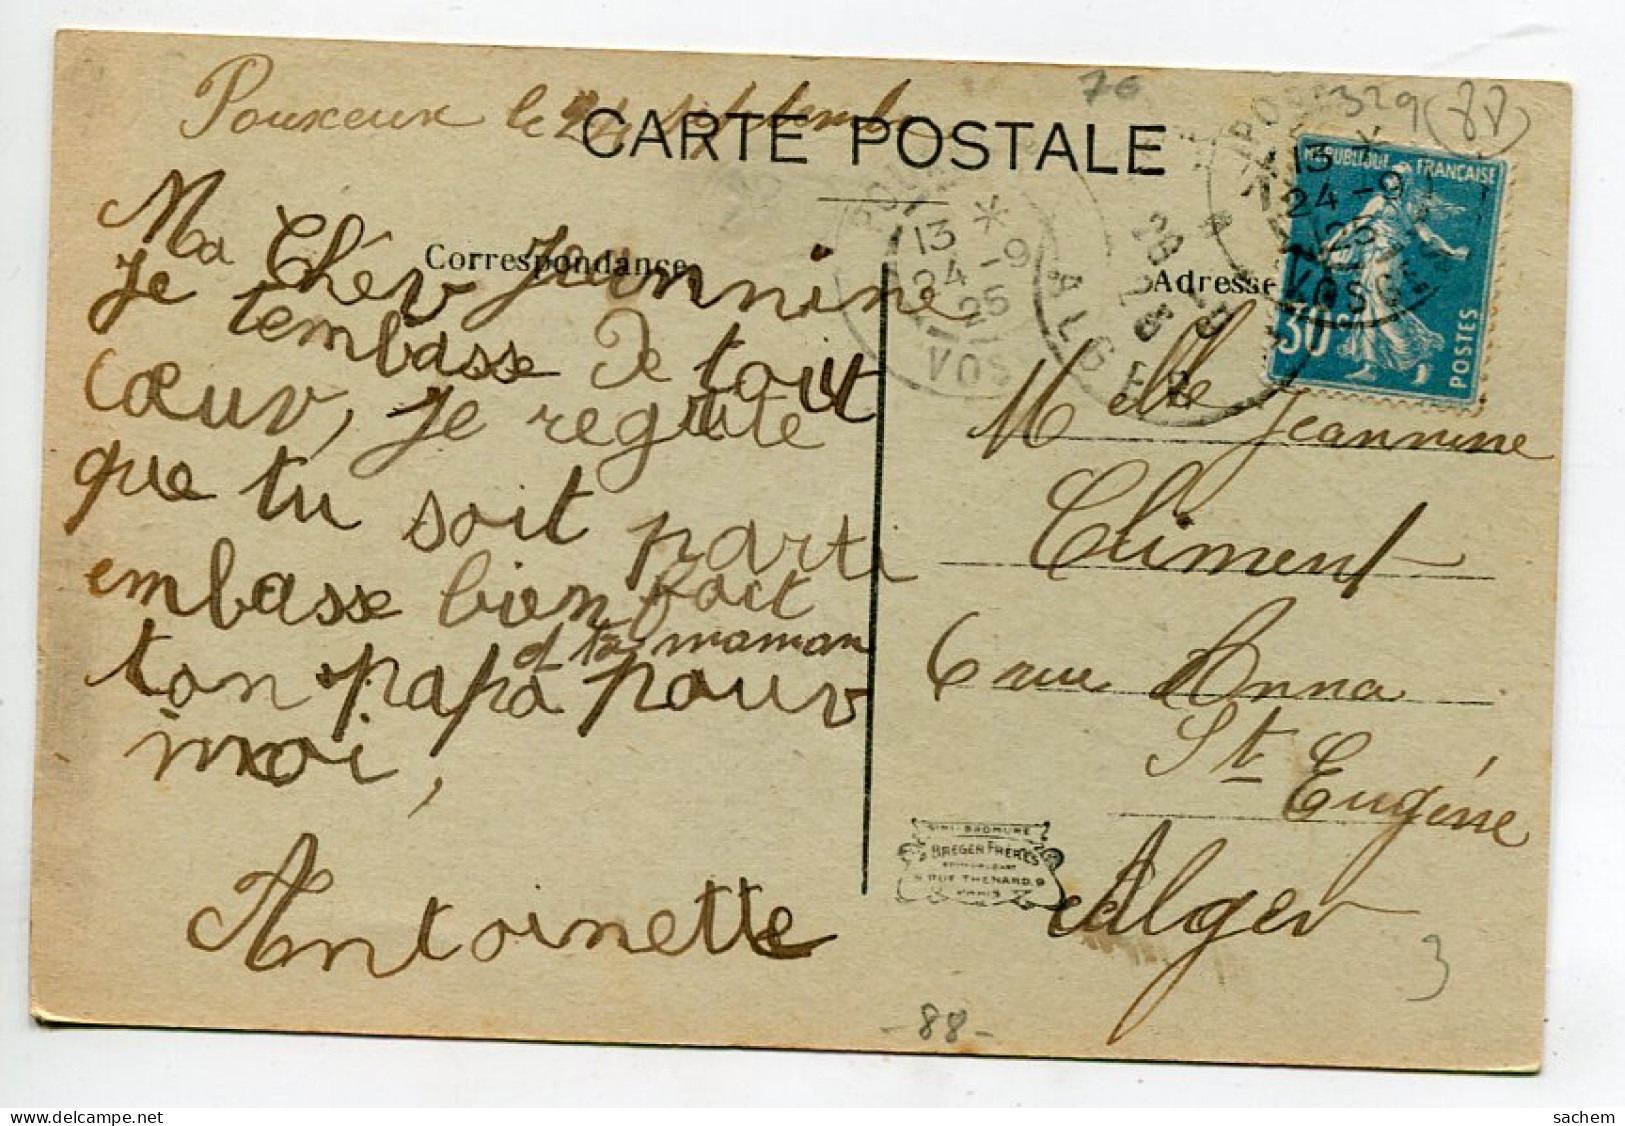 Pouxeux le 24 septembre
CARTE POSTALE
Correspondance
Adresse
Ma Chér Jeannine
Je tembasse De tout
cœur, je regrute
que tu soit parti
embasse bien fait
et ta maman
ton papa pour
moi,
Antoinette
76
329 (88)
REPUBLIQUE FRANÇAISE
30c
POSTES
13 *
24 - 9
25
VOS
13
24 - 9
25
VOSGES
ALGER
Melle Jeannine
Climent
6 rue Anna
St Eugéne
Alger
SIMI-BROMURE
BREGER FRÈRES
9 RUE THENARD. 9
PARIS
3
- 88 -
sachem